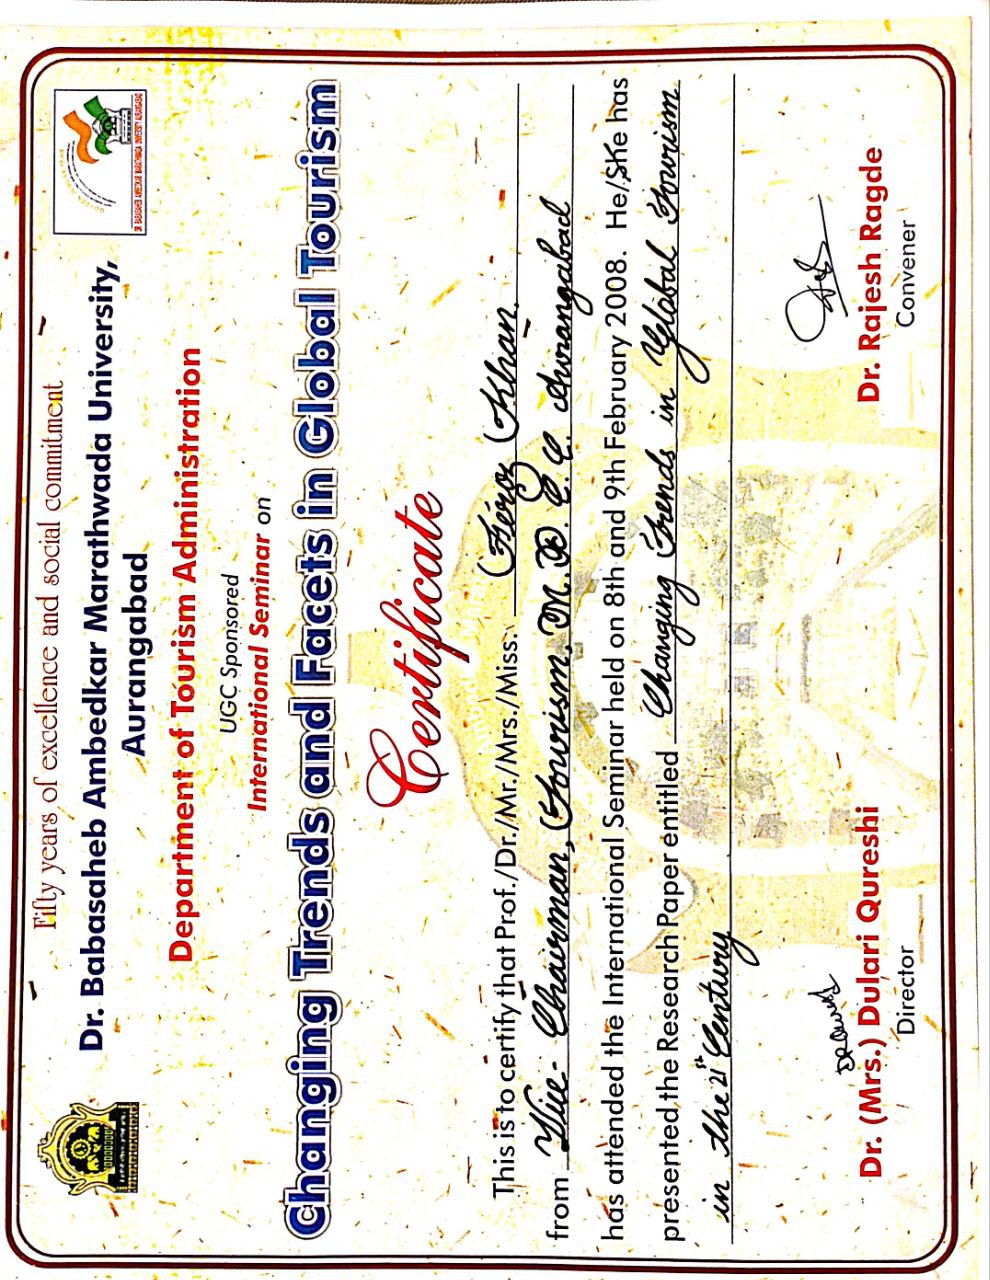 Fifty years of excellence and social commitment
Dr. Babasaheb Ambedkar Marathwada University,
Aurangabad
Department of Tourism Administration
UGC Sponsored
International Seminar on
Changing Trends and Facets in Global Tourism
Certificate
This is to certify that Prof./Dr./Mr./Mrs./Miss. Feroz Khan.
from Vice-Chairman, Tourism, M. D. E. C. Aurangabad
has attended the International Seminar held on 8th and 9th February 2008. He/She has
presented the Research Paper entitled Changing Trends in Global Tourism
in the 21st Century
Dr. (Mrs.) Dulari Qureshi
Director
Dr. Rajesh Ragde
Convener